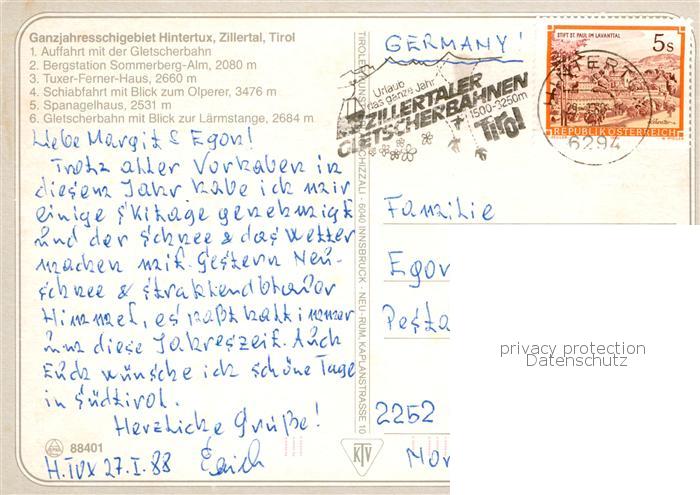 Ganzjahresschigebiet Hintertux, Zillertal, Tirol
1. Auffahrt mit der Gletscherbahn
2. Bergstation Sommerberg-Alm, 2080 m
3. Tuxer-Ferner-Haus, 2660 m
4. Schiabfahrt mit Blick zum Olperer, 3476 m
5. Spanagelhaus, 2531 m
6. Gletscherbahn mit Blick zur Lärmstange, 2684 m
Liebe Margit & Egon!
Trotz aller Vorhaben in
diesem Jahr habe ich mir
einige Skitage genehmigt
und der Schnee & das Wetter
machen mit. Gestern Neu-
schnee & strahlendblauer
Himmel, es paßt halt immer
um diese Jahreszeit. Auch
Euch wünsche ich schöne Tage
in Südtirol.
Herzliche Grüße!
H.TUX 27.I.88 Erich
88401
SCHIZZALI - 6040 INNSBRUCK - NEU-RUM, KAPLANSTRASSE 10
KTV
GERMANY!
Urlaub
das ganze Jahr
ZILLERTALER
GLETSCHERBAHNEN
1500-3250m
Tirol
STIFT ST. PAUL IM LAVANTTAL
5s
REPUBLIK ÖSTERREICH
6294
Familie
Egon
Pesta
2252
Mor
privacy protection
Datenschutz